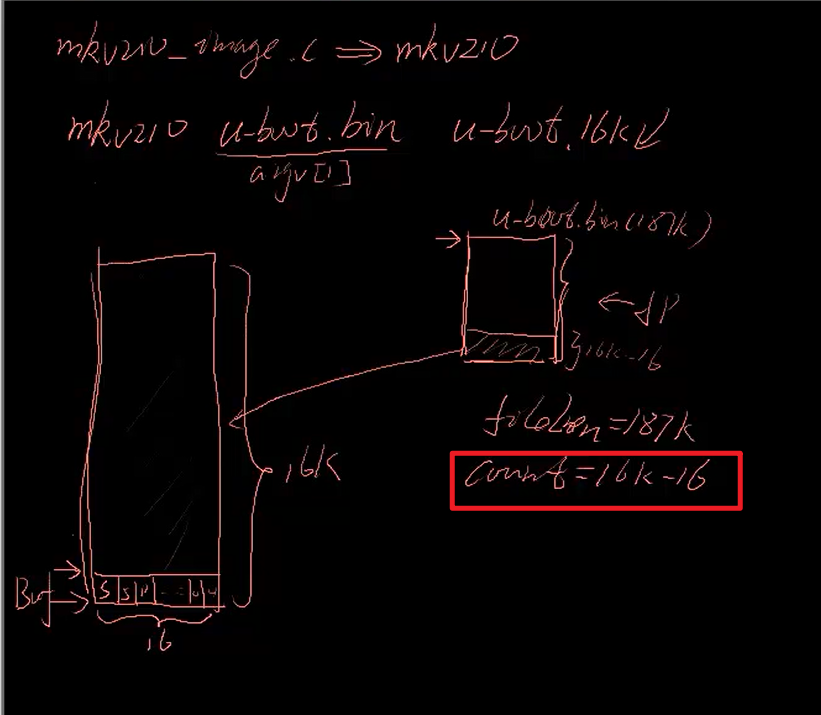 mkv210_image.c ⇒ mkv210
mkv210 u-boot.bin u-boot.16k
argv[1]
u-boot.bin(187k)
← fp
16k-16
filelen=187k
count=16k-16
16K
Buf
16